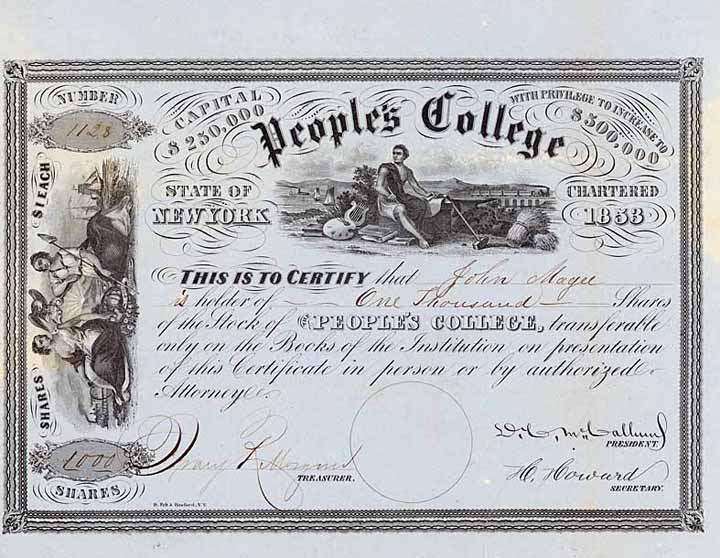 NUMBER
1128
CAPITAL
$250,000
People's College
WITH PRIVILEGE TO INCREASE TO
$500,000
STATE OF
NEW YORK
CHARTERED
1853
SHARES $1 EACH
THIS IS TO CERTIFY that John Magee
is holder of One Thousand Shares
of the Stock of the PEOPLE'S COLLEGE, transferable
only on the Books of the Institution on presentation
of this Certificate in person or by authorized
Attorney.
D. C. McCallum
PRESIDENT.
TREASURER.
H. Howard
SECRETARY.
1000
SHARES